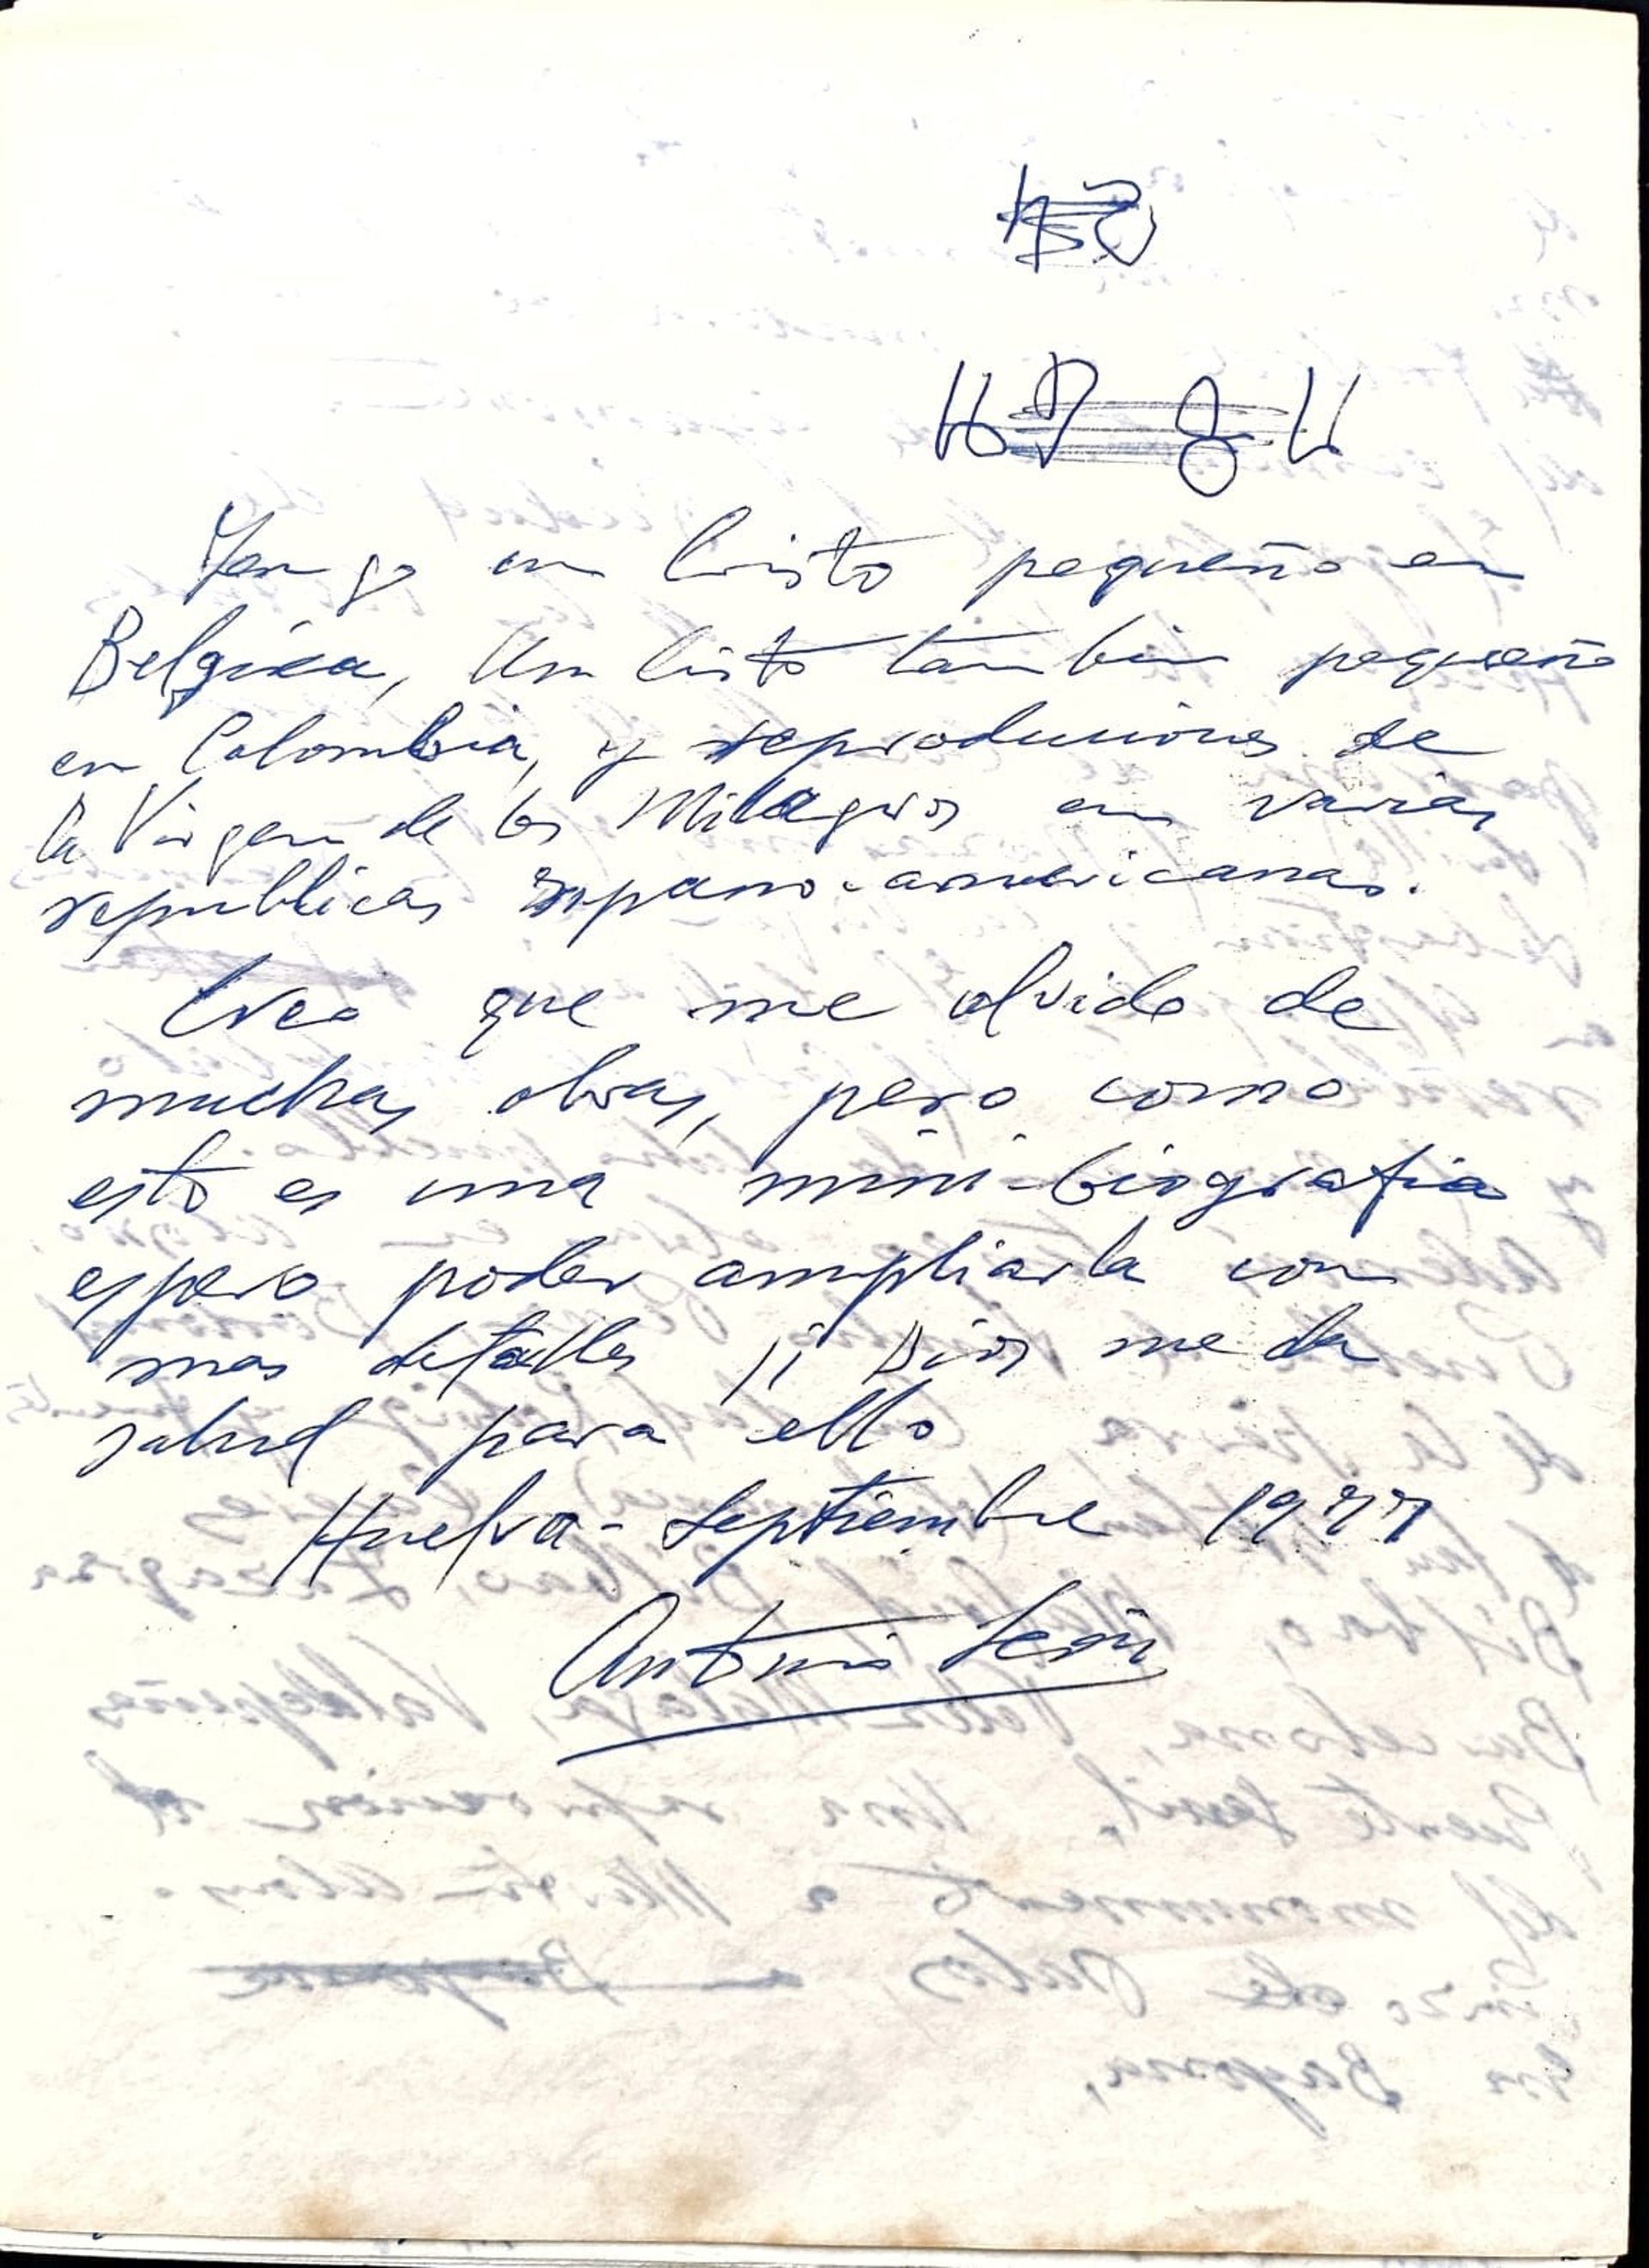 Tengo un Cristo pequeño en
Belgica, Un Cristo tambien pequeño
en Colombia, y reproduciones de
la Virgen de los Milagros en varias
republicas ispano-americanas.
Creo que me olvido de
muchas obras, pero como
esto es una mini-biografia
espero poder ampliarla con
mas detalles si Dios me da
salud para ello
Huelva - Septiembre 1977
Antonio León